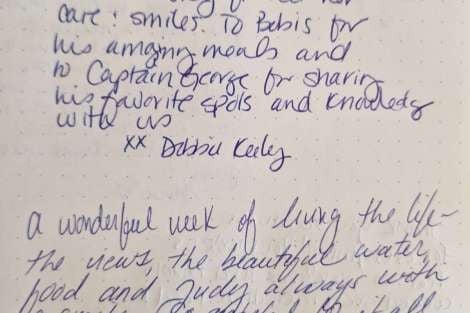 care & smiles. To Babis for
his amazing meals and
to Captain George for sharing
his favorite spots and knowledge
with us
xx Debbie Keeley
a wonderful week of living the life-
the views, the beautiful water,
food and Judy always with
a smile. So grateful to it all